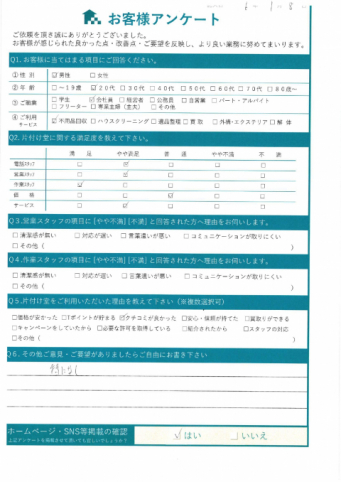 お客様アンケート
ご依頼を頂き誠にありがとうございました。
お客様が感じられた良かった点・改善点・ご要望を反映し、より良い業務に努めてまいります。
Q1.お客様に当てはまる項目にご回答ください。
①性別 ☑男性 □女性
②年齢 □~19歳 ☑20代 □30代 □40代 □50代 □60代 □70代 □80歳~
③ご職業 □学生 ☑会社員 □経営者 □公務員 □自営業 □パート・アルバイト
□フリーター □専業主婦(主夫) □その他
④ご利用サービス ☑不用品回収 □ハウスクリーニング □遺品整理 □買取 □外構・エクステリア □解体
Q2.片付け堂に関する満足度を教えて下さい。
満足 やや満足 普通 やや不満 不満
電話スタッフ □ ☑ □ □ □
営業スタッフ □ ☑ □ □ □
作業スタッフ ☑ □ □ □ □
価格 □ □ ☑ □ □
サービス □ ☑ □ □ □
Q3.営業スタッフの項目に[やや不満][不満]と回答された方へ理由をお伺いします。
□清潔感が無い □対応が遅い □言葉遣いが悪い □コミュニケーションが取りにくい
□その他( )
Q4.作業スタッフの項目に[やや不満][不満]と回答された方へ理由をお伺いします。
□清潔感が無い □対応が遅い □言葉遣いが悪い □コミュニケーションが取りにくい
□その他( )
Q5.片付け堂をご利用いただいた理由を教えて下さい(※複数選択可)
□価格が安かった □Tポイントが貯まる ☑クチコミが良かった □安心・信頼が持てた □買取ができる
□キャンペーンをしていたから □必要な許可を取得している □紹介されたから □スタッフの対応
□その他( )
Q6.その他ご意見・ご要望がありましたらご自由にお書き下さい
特になし
ホームページ・SNS等掲載の確認
上記アンケートを掲載させて頂いても宜しいでしょうか?
☑はい □いいえ